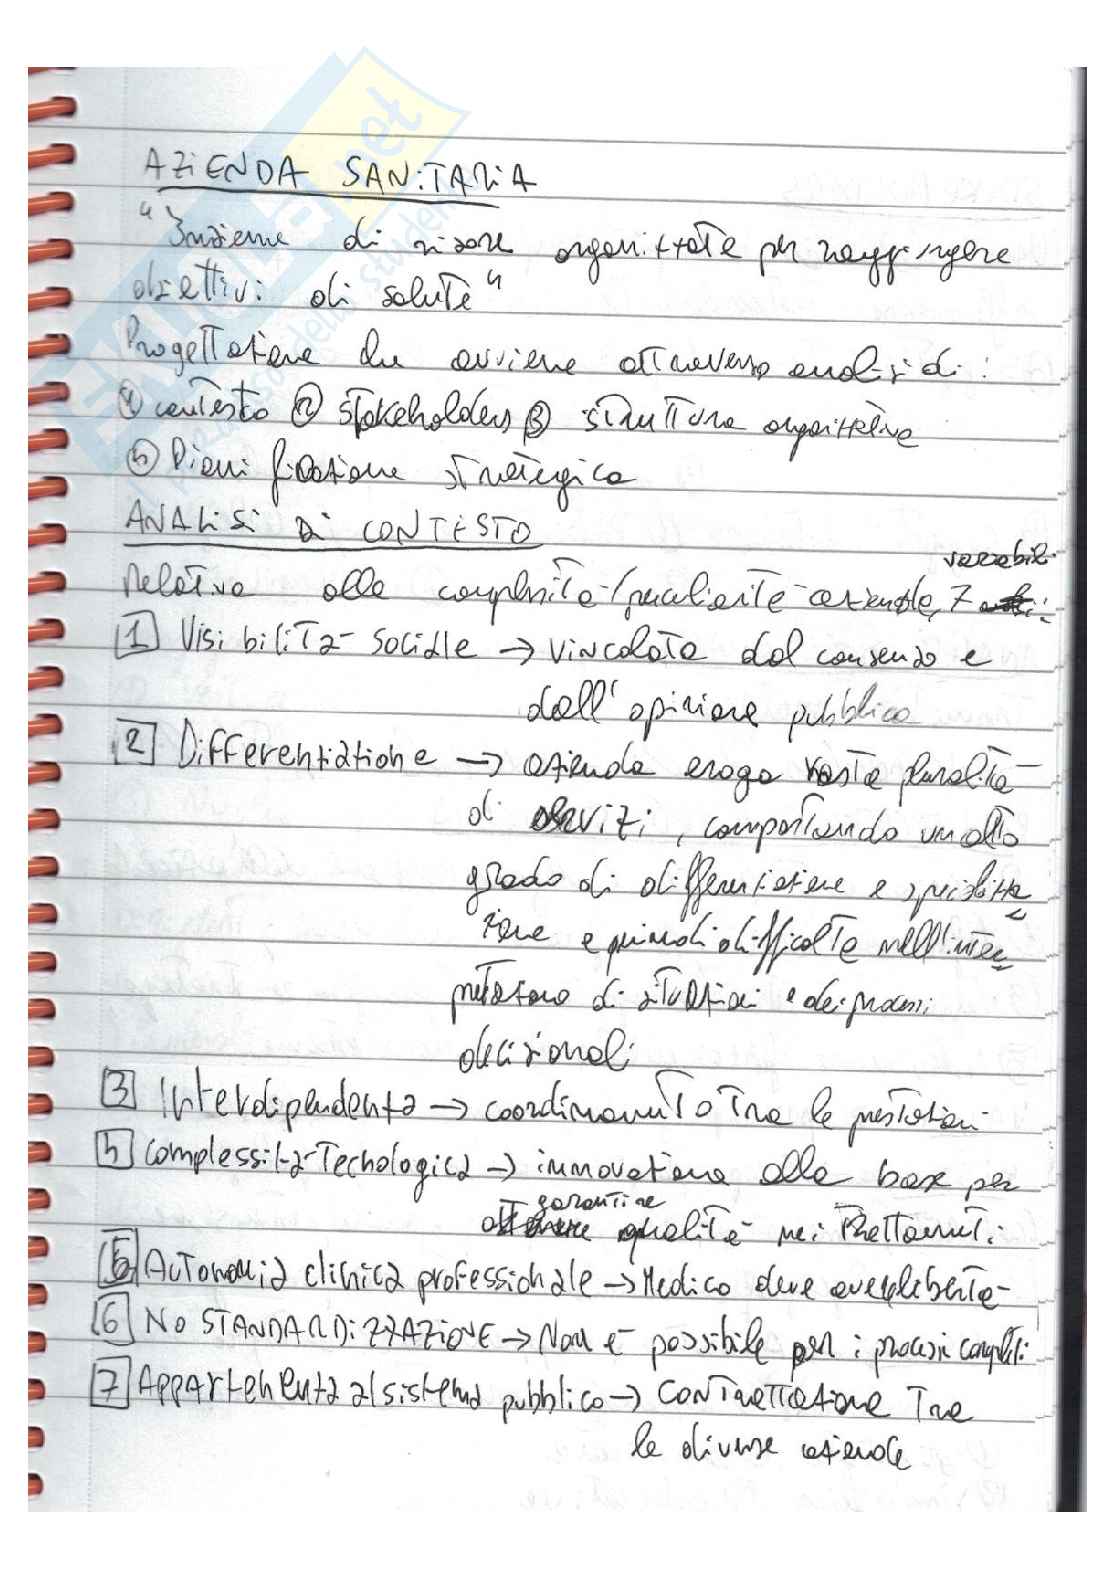 AZIENDA SANITARIA
"Insieme di risorse organizzate per raggiungere
obiettivi di salute"
Progettazione che avviene attraverso analisi di:
① contesto ② stakeholders ③ struttura organizzativa
④ Pianificazione strategica
ANALISI DI CONTESTO
variabili
Relativa alle complessità/peculiarità aziendale, 7
1 Visibilità sociale → vincolata dal consenso e
dall'opinione pubblica
2 Differenziazione → azienda eroga vasta pluralità
di servizi, comportando un alto
grado di differenziazione e specializza
zione e quindi difficoltà nell'inter
pretazione di situazioni e dei processi
decisionali
3 Interdipendenza → coordinamento tra le prestazioni
4 Complessità Tecnologica → innovazione alla base per
garantire
qualità nei trattamenti
5 Autonomia clinica professionale → Medico deve avere libertà
6 NO STANDARDIZZAZIONE → Non è possibile per i processi complessi
7 Appartenenza al sistema pubblico → contrattazione tra
le diverse aziende